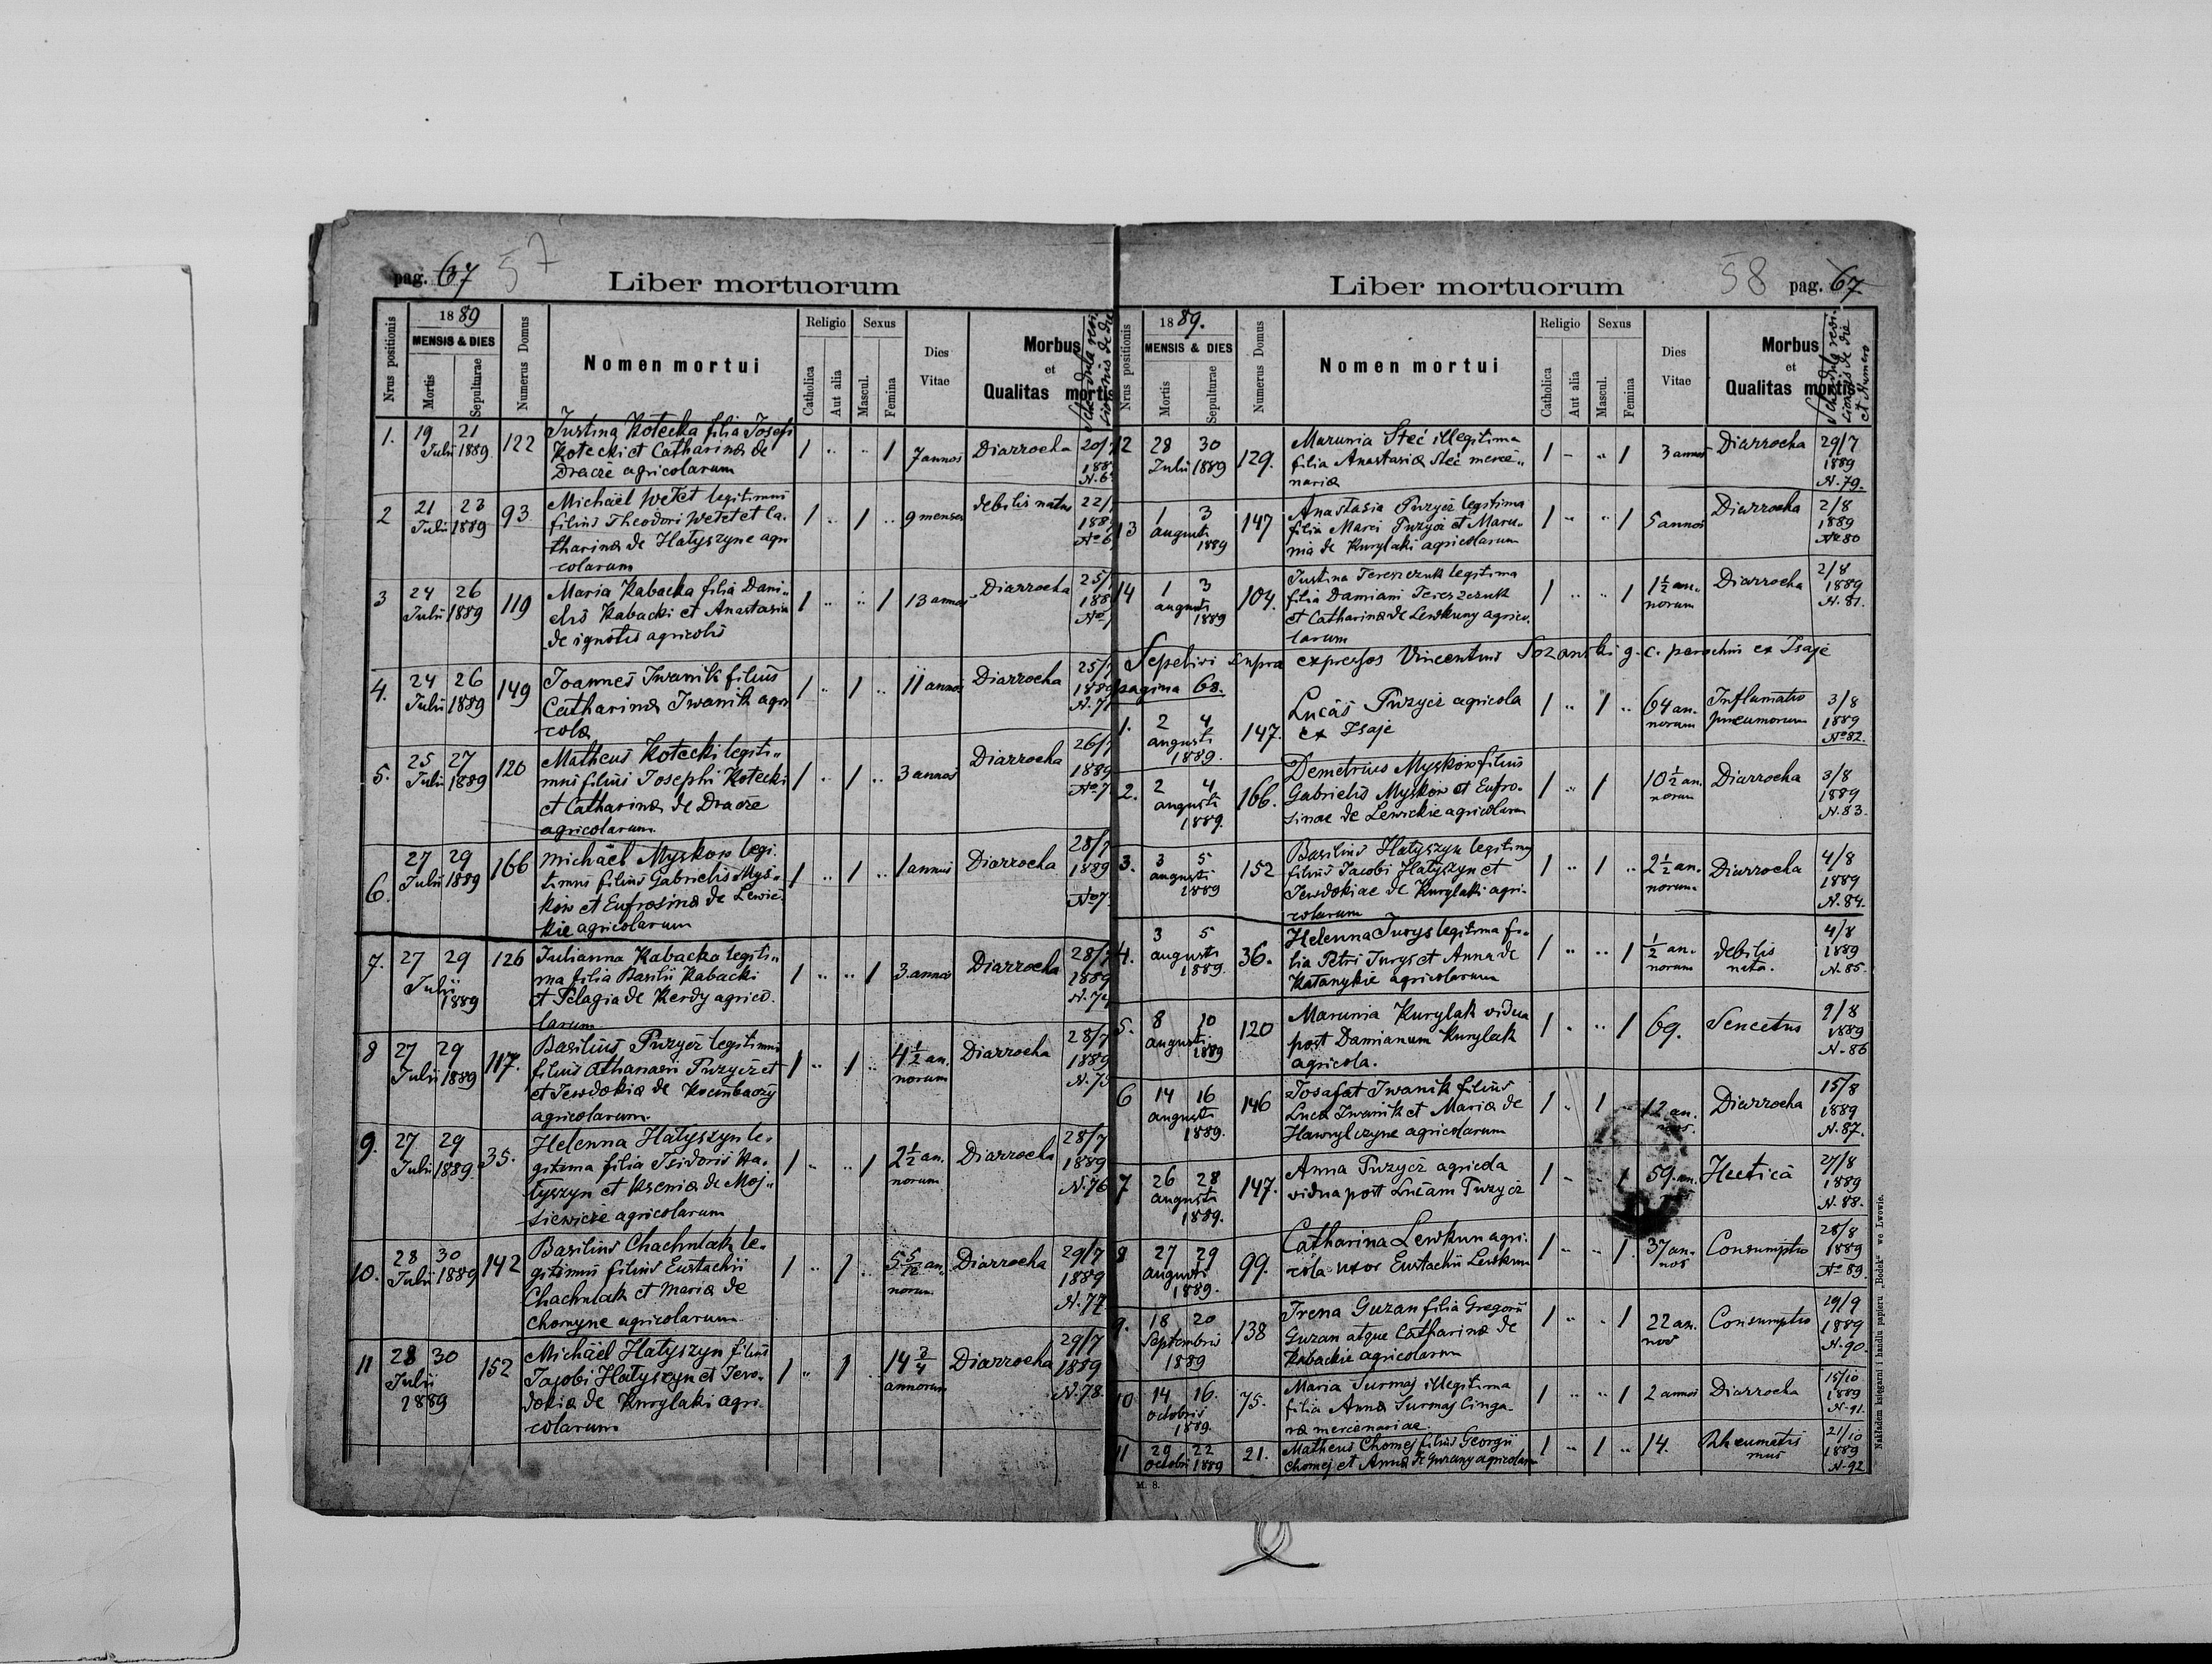 pag. 67 57
Liber mortuorum
Nrus positionis
1889
MENSIS & DIES
Mortis
Sepulturae
Numerus Domus
Nomen mortui
Religio
Catholica
Aut alia
Sexus
Mascul.
Femina
Dies
Vitae
Morbus
et
Qualitas mortis
1. 19 21 Julii 1889 122
Justina Kotecka filia Josefi
Kotecki et Catharina de
Dracze agricolarum
1 .. .. 1 7 annos Diarrocha 20/7
188
N.6
2 21 23 Julii 1889 93
Michael Wetet legitimus
filius Theodori Wetet et Ca-
tharina de Hatyszyne agri
colarum
1 .. 1 .. 9 menses debilis natus 22/
188
No 6
3 24 26 Julii 1889 119
Maria Kabacka filia Dani-
elis Kabacki et Anastasia
de ignotis agricolis
1 .. .. 1 13 annos Diarrocha 25/
188
No
4. 24 26 Julii 1889 149
Joannes Iwanik filius
Catharina Iwanik agri
cola
1 .. 1 .. 11 annos Diarrocha 25/7
1889
N.7
5. 25 27 Julii 1889 120
Matheus Kotecki legiti-
mus filius Josephi Kotecki
et Catharina de Dracze
agricolarum
1 .. 1 .. 3 annos Diarrocha 26/7
1889
No 7
6. 27 29 Julii 1889 166
Michael Myskow legi-
timus filius Gabrielis Mys-
kow et Eufrosina de Lewic-
kie agricolarum
1 .. 1 .. 1 annus Diarrocha 28/7
1889
No 7
7. 27 29 Julii 1889 126
Julianna Kabacka legiti-
ma filia Basilii Kabacki
et Pelagia de Kerdy agrico-
larum
1 .. .. 1 3 annos Diarrocha 28/7
1889
N.74
8 27 29 Julii 1889 117.
Basilius Puzycz legitimus
filius Athanasii Puzycz et
et Jewdokia de
agricolarum.
1 .. 1 .. 4 1/2 an-
norum Diarrocha 28/7
1889
N.75
9. 27 29 Julii 1889. 35.
Helenna Hatyszyn le-
gitima filia Isidori Ha-
tyszyn et Ksenia de Moj-
siewicze agricolarum
1 .. .. 1 2 1/2 an.
norum Diarrocha 28/7
1889
N.76
10. 28 30 Julii 1889 142
Basilius Chachulak le-
gitimus filius Eustachii
Chachulak et Maria de
Chomyne agricolarum
1 .. 1 .. 5 5/12 an-
norum Diarrocha 29/7
1889
N.77
11 28 30 Julii 1889 152
Michael Hatyszyn filius
Jacobi Hatyszyn et Jew-
dokia de Kurylaki agri-
colarum
1 .. 1 .. 14 3/4
annorum Diarrocha 29/7
1889
N.78.
Liber mortuorum
58 pag. 67
Nrus positionis
1889.
MENSIS & DIES
Mortis
Sepulturae
Numerus Domus
Nomen mortui
Religio
Catholica
Aut alia
Sexus
Mascul.
Femina
Dies
Vitae
Morbus
et
Qualitas mortis
et Numero
12 28 30 Julii 1889 129.
Marunia Steć illegitima
filia Anastasia Steć merce-
naria
1 - .. 1 3 annos Diarrocha 29/7
1889
N.79.
13 1 3 augusti 1889 147
Anastasia Puzycz legitima
filia Marci Puzycz et Maru-
nia de Kurylaki agricolarum
1 .. .. 1 5 annos Diarrocha 2/8
1889
No 80
14 1 3 augusti 1889 104.
Justina Tereszczuk legitima
filia Damiani Tereszczuk
et Catharina de Lewkuny agrico-
larum
1 .. .. 1 1 1/2 an-
norum Diarrocha 2/8
1889
N.81.
Sepelivi supra expressos Vincentius Sozanski g. c. parochus ex Isaje
pagina 68.
1. 2 4 augusti 1889. 147.
Lucas Puzycz agricola
ex Isaje
1 .. 1 .. 64 an-
norum Inflamatio
pneumorum 3/8
1889
No 82.
2. 2 4 augusti 1889. 166.
Demetrius Myskow filius
Gabrielis Myskow et Eufro-
sinae de Lewickie agricolarum
1 .. 1 10 1/2 an.
norum Diarrocha 3/8
1889
N.83.
3. 3 5 augusti 1889 152
Basilius Hatyszyn legitimus
filius Jacobi Hatyszyn et
Jewdokiae de Kurylaki agri-
colarum
1 .. 1 .. 2 1/2 an.
norum Diarrocha 4/8
1889
N.84.
4. 3 5 augusti 1889. 36.
Helenna Jurys legitima fi-
lia Petri Jurys et Anna de
Katanykie agricolarum
1 .. .. 1 1/2 an-
norum debilis
nata. 4/8
1889
N.85.
5. 8 10 augusti 1889 120
Marunia Kurylak vidua
post Damianum Kurylak
agricola.
1 .. .. 1 69. Senectus 9/8
1889
N.86
6 14 16 augusti 1889. 146
Josafat Iwanik filius
Luca Iwanik et Maria de
Hawrylczyne agricolarum
1 .. 1 .. 12 an.
nos. Diarrocha 15/8
1889
N.87.
7 26 28 augusti 1889. 147.
Anna Puzycz agricola
vidua post Lucam Puzycz
1 - 1 59. an. Hectica 27/8
1889
N.88.
8 27 29 augusti 1889. 99.
Catharina Lewkun agri-
cola uxor Eustachii Lewkun
1 .. .. 1. 37 an-
nos Consumptio 28/8
1889
No 89.
9. 18 20 Septembris 1889 138
Irena Guzan filia Gregorii
Guzan atque Catharina de
Kabackie agricolarum
1 .. .. 1 22 an.
nos Consumptio 19/9
1889
N.90.
10 14 16. octobris 1889. 75.
Maria Surmaj illegitima
filia Anna Surmaj Cinga-
ra mercenariae.
1 .. .. 1 2 annos Diarrocha 15/10
1889
N.91.
11 20 22 octobri 1889 21.
Matheus Chomej filius Georgii
Chomej et Anna de Guzany agricolarum
1 .. 1 .. 14. Rheumatis
mus 21/10
1889
N.92
M. 8.
Nakładem księgarni i handlu papieru „Bodek“ we Lwowie.